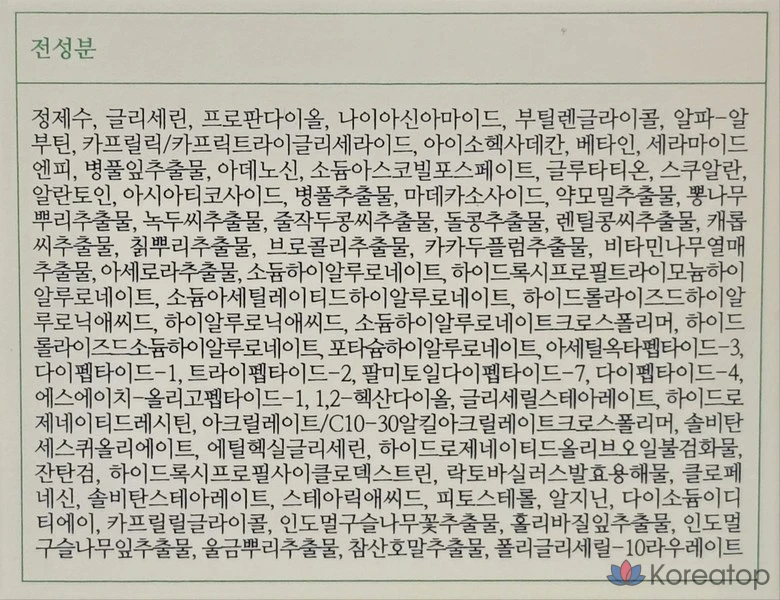 전성분
정제수, 글리세린, 프로판다이올, 나이아신아마이드, 부틸렌글라이콜, 알파-알
부틴, 카프릴릭/카프릭트라이글리세라이드, 아이소헥사데칸, 베타인, 세라마이드
엔피, 병풀잎추출물, 아데노신, 소듐아스코빌포스페이트, 글루타티온, 스쿠알란,
알란토인, 아시아티코사이드, 병풀추출물, 마데카소사이드, 약모밀추출물, 뽕나무
뿌리추출물, 녹두씨추출물, 줄작두콩씨추출물, 돌콩추출물, 렌틸콩씨추출물, 캐롭
씨추출물, 칡뿌리추출물, 브로콜리추출물, 카카두플럼추출물, 비타민나무열매
추출물, 아세로라추출물, 소듐하이알루로네이트, 하이드록시프로필트라이모늄하이
알루로네이트, 소듐아세틸레이티드하이알루로네이트, 하이드롤라이즈드하이알
루로닉애씨드, 하이알루로닉애씨드, 소듐하이알루로네이트크로스폴리머, 하이드
롤라이즈드소듐하이알루로네이트, 포타슘하이알루로네이트, 아세틸옥타펩타이드-3,
다이펩타이드-1, 트라이펩타이드-2, 팔미토일다이펩타이드-7, 다이펩타이드-4,
에스에이치-올리고펩타이드-1, 1,2-헥산다이올, 글리세릴스테아레이트, 하이드로
제네이티드레시틴, 아크릴레이트/C10-30알킬아크릴레이트크로스폴리머, 솔비탄
세스퀴올리에이트, 에틸헥실글리세린, 하이드로제네이티드올리브오일불검화물,
잔탄검, 하이드록시프로필사이클로덱스트린, 락토바실러스발효용해물, 클로페
네신, 솔비탄스테아레이트, 스테아릭애씨드, 피토스테롤, 알지닌, 다이소듐이디
티에이, 카프릴릴글라이콜, 인도멀구슬나무꽃추출물, 홀리바질잎추출물, 인도멀
구슬나무잎추출물, 울금뿌리추출물, 참산호말추출물, 폴리글리세릴-10라우레이트
Koreatop